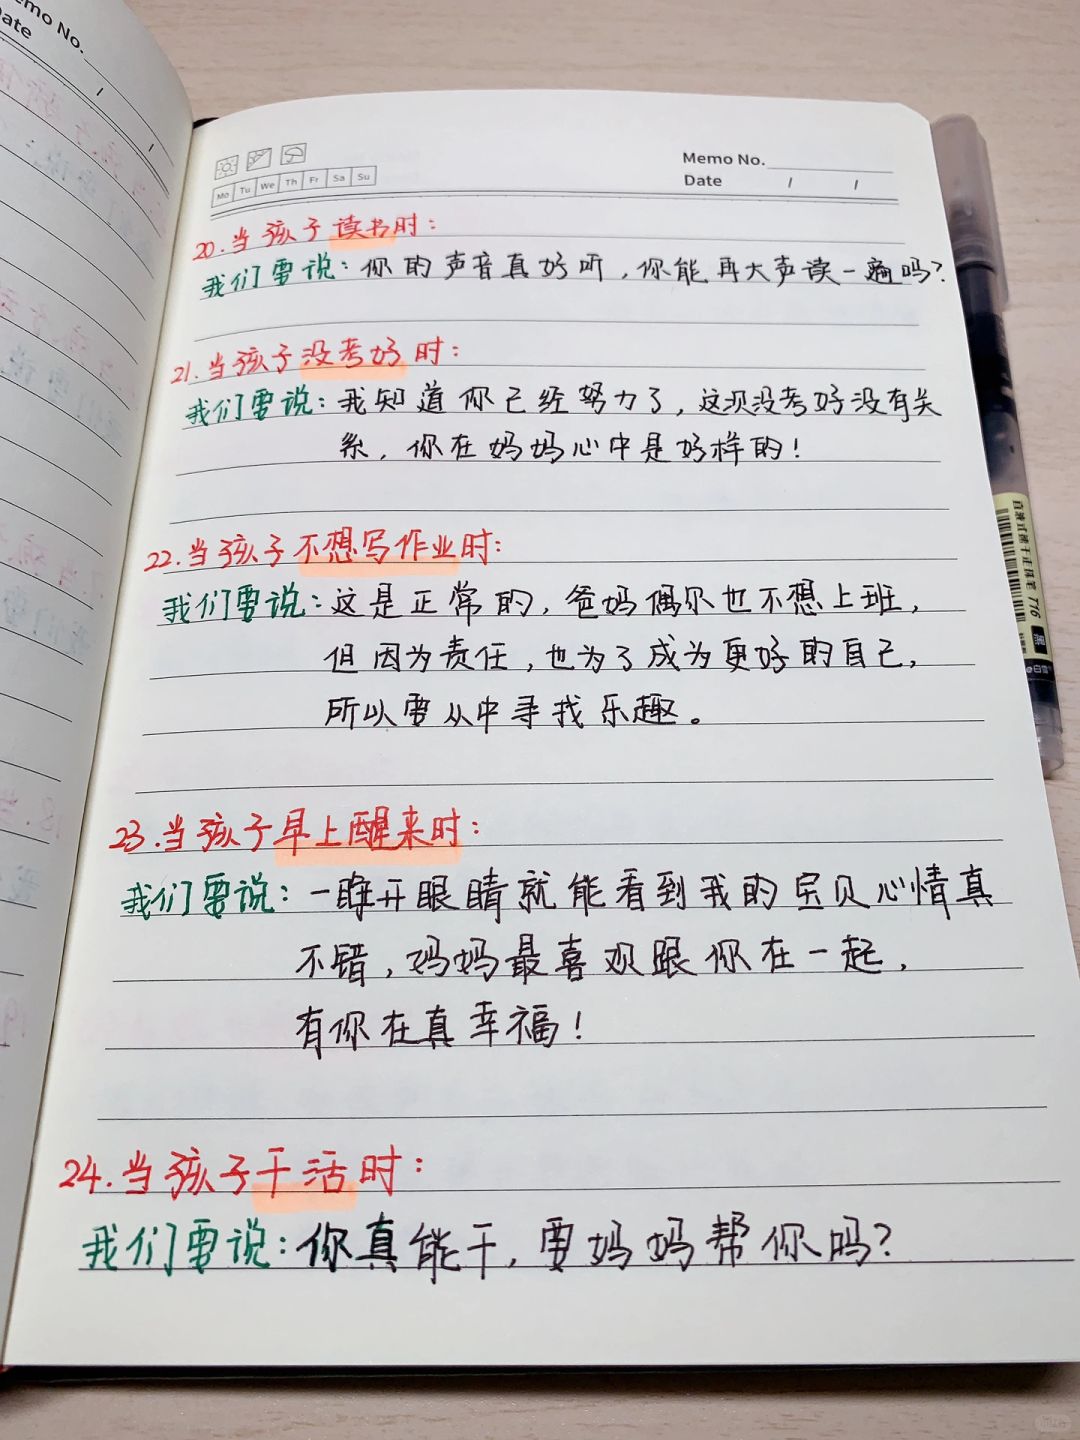 emo No.
Date
Memo No.
Date / /
Mo Tu We Th Fr Sa Su
20.当孩子读书时：
我们要说：你的声音真好听，你能再大声读一遍吗？
21.当孩子没考好时：
我们要说：我知道你已经努力了，这次没考好没有关
系，你在妈妈心中是好样的！
22.当孩子不想写作业时：
我们要说：这是正常的，爸妈偶尔也不想上班，
但因为责任，也为了成为更好的自己，
所以要从中寻找乐趣。
23.当孩子早上醒来时：
我们要说：一睁开眼睛就能看到我的宝贝心情真
不错，妈妈最喜欢跟你在一起，
有你在真幸福！
24.当孩子干活时：
我们要说：你真能干，要妈妈帮你吗？
直液式速干走珠笔 776 黑